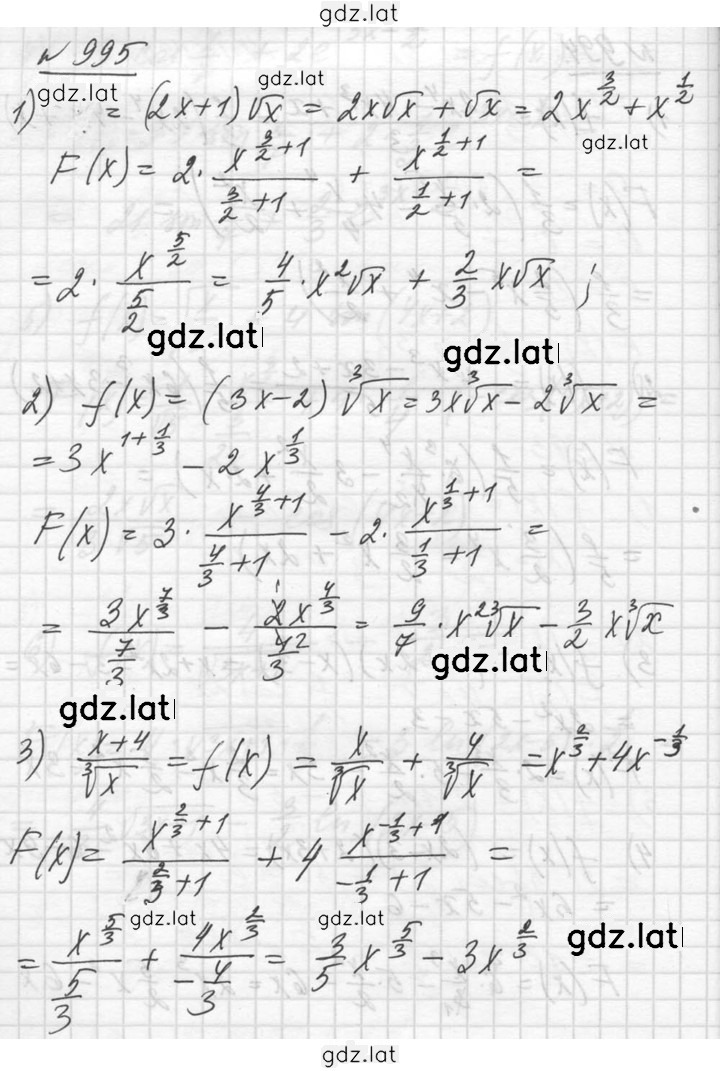 gdz.lat
№ 995
gdz.lat gdz.lat
1) = (2x+1)√x = 2x√x + √x = 2x^(3/2) + x^(1/2)
gdz.lat
F(x) = 2 · x^(3/2+1)/(3/2+1) + x^(1/2+1)/(1/2+1) =
= 2 · x^(5/2)/(5/2) = 4/5 · x²√x + 2/3 x√x ;
gdz.lat gdz.lat
2) f(x) = (3x-2) ∛x = 3x∛x - 2∛x =
= 3x^(1+1/3) - 2x^(1/3)
F(x) = 3 · x^(4/3+1)/(4/3+1) - 2 · x^(1/3+1)/(1/3+1) =
= 3x^(7/3)/(7/3) - 2x^(4/3)/(4/3) = 9/7 · x²∛x - 3/2 x∛x
gdz.lat
gdz.lat
3) (x+4)/∛x = f(x) = x/∛x + 4/∛x = x^(2/3) + 4x^(-1/3)
F(x) = x^(2/3+1)/(2/3+1) + 4 x^(-1/3+1)/(-1/3+1) =
gdz.lat gdz.lat gdz.lat
= x^(5/3)/(5/3) + 4x^(2/3)/(-4/3) = 3/5 x^(5/3) - 3x^(2/3)
gdz.lat